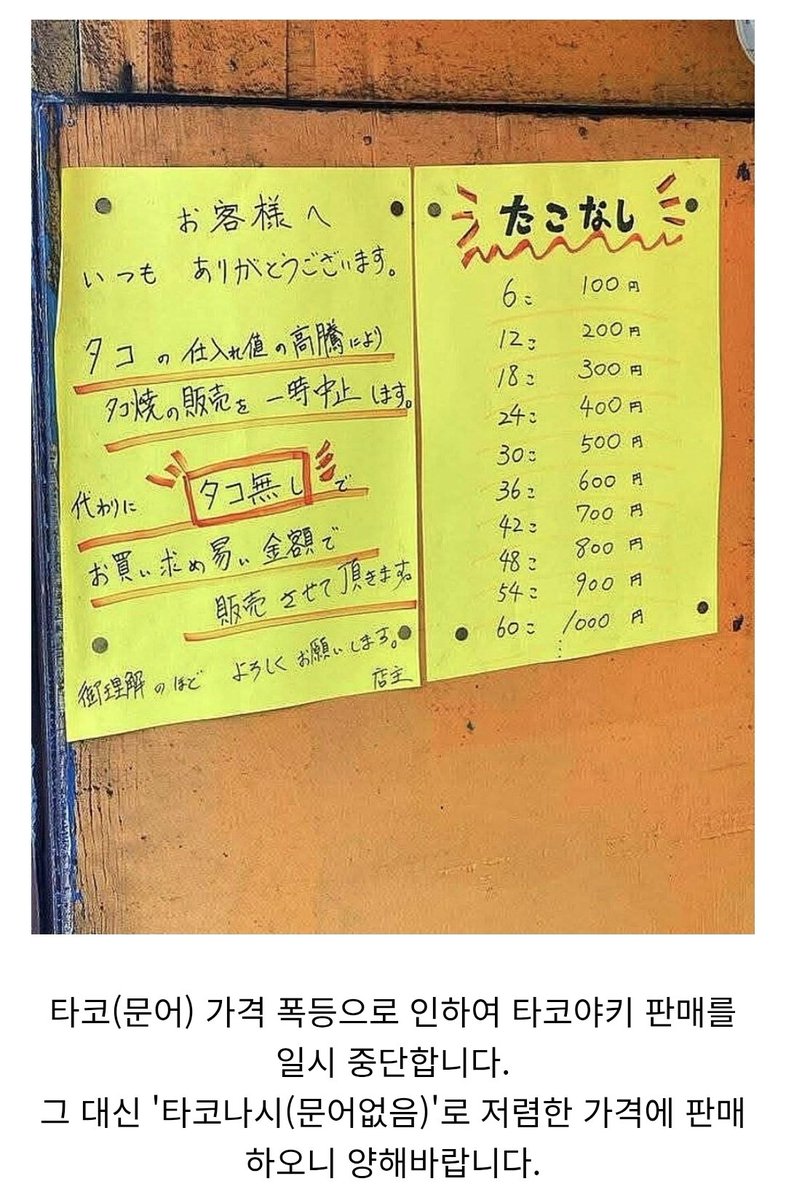 お客様へ
いつも ありがとうございます。
タコの仕入れ値の高騰により
タコ焼の販売を一時中止します。
代わりに タコ無しで
お買い求め易い金額で
販売させて頂きます。
御理解のほど よろしくお願いします。
店主
たこなし
6コ 100円
12コ 200円
18コ 300円
24コ 400円
30コ 500円
36コ 600円
42コ 700円
48コ 800円
54コ 900円
60コ 1000円
타코(문어) 가격 폭등으로 인하여 타코야키 판매를
일시 중단합니다.
그 대신 '타코나시(문어없음)'로 저렴한 가격에 판매
하오니 양해바랍니다.